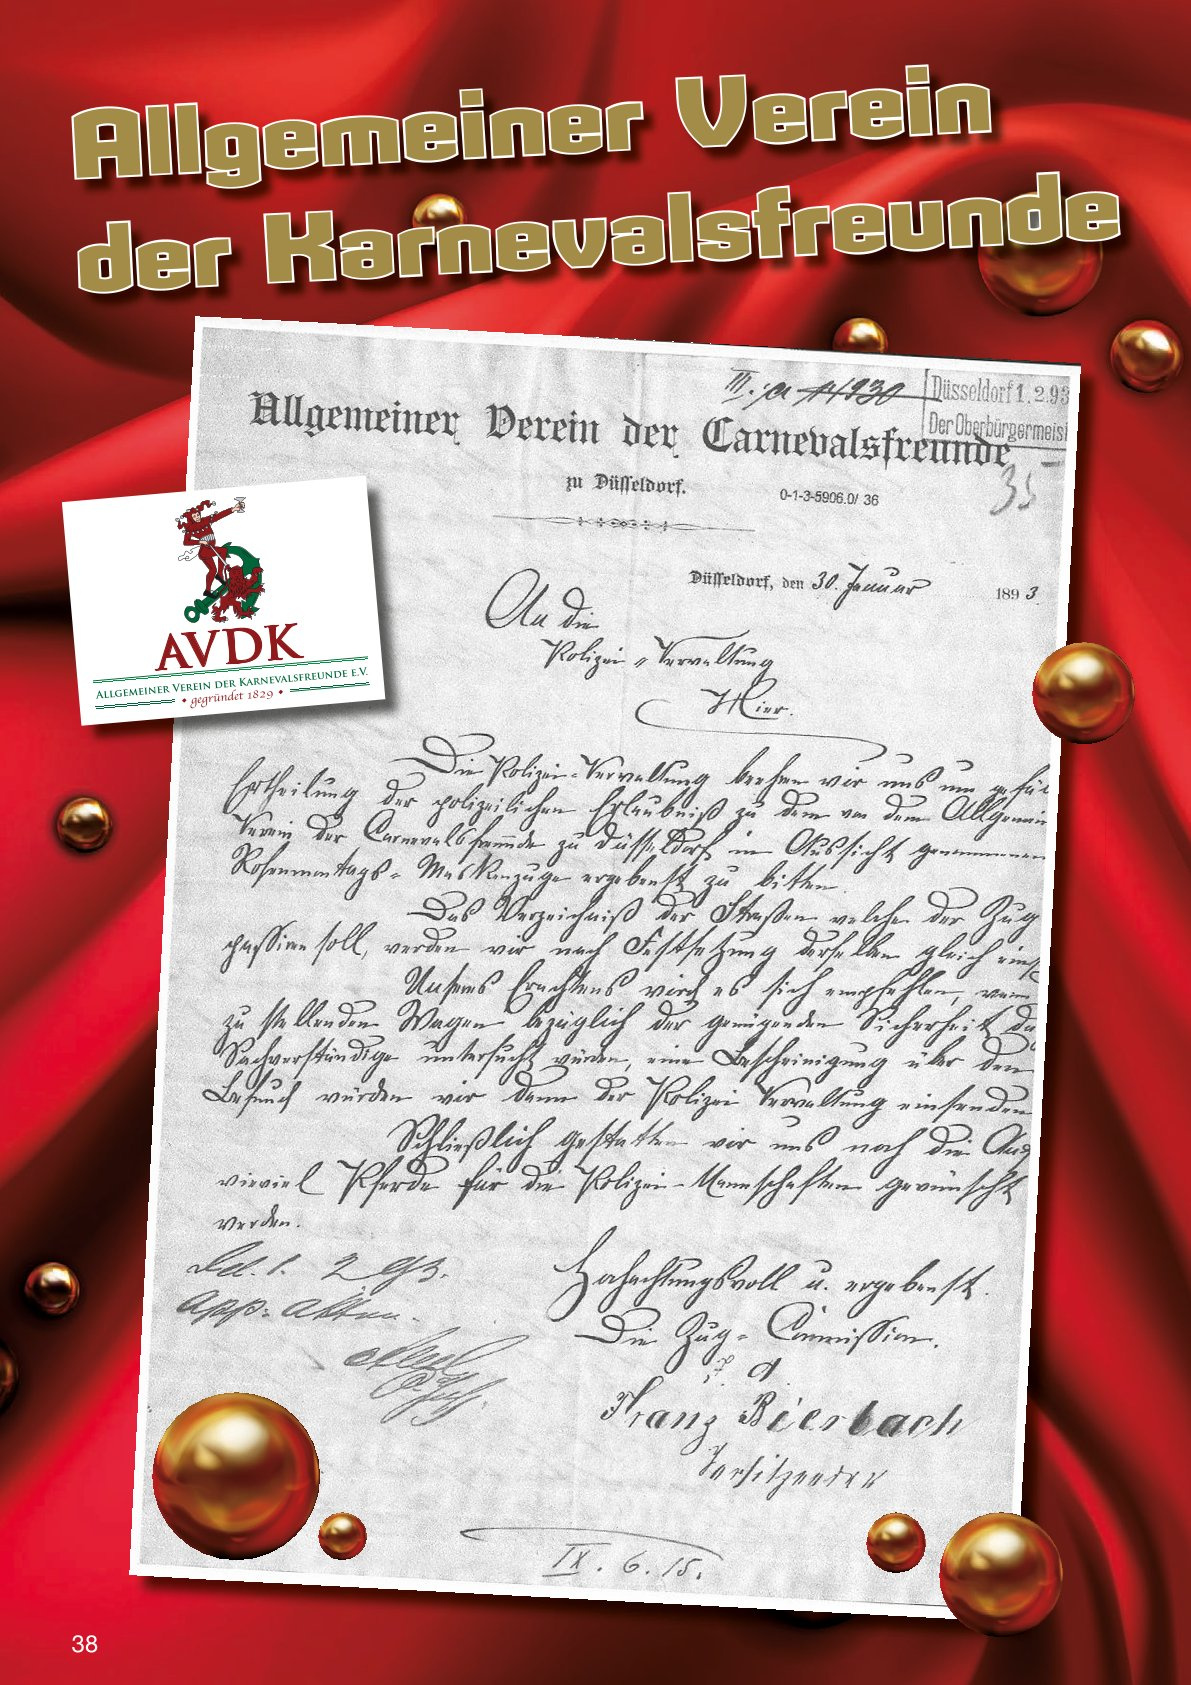 Allgemeiner Verein
der Karnevalsfreunde
III. a 1930
Düsseldorf 1.2.93
Der Oberbürgermeis
Allgemeiner Verein der Carnevalsfreunde
35
zu Düsseldorf.
0-1-3-5906.0/ 36
Düsseldorf, den 30. Januar 1893.
AVDK
ALLGEMEINER VEREIN DER KARNEVALSFREUNDE E.V.
• gegründet 1829 •
An die
Polizei-Verwaltung
Hier.
Die Polizei-Verwaltung beehren wir uns um gefäl
Ertheilung der polizeilichen Erlaubniß zu dem von dem Allgemein
Verein der Carnevalsfreunde zu Düsseldorf in Aussicht genommenen
Rosenmontags-Maskenzuge ergebenst zu bitten.
Das Verzeichniß der Straßen welche der Zug
passiren soll, werden wir nach Festsetzung derselben gleich eins
Unseres Erachtens wird es sich empfehlen, wenn
zu stellenden Wagen bezüglich der genügenden Sicherheit du
Sachverständige untersucht würden, eine Bescheinigung über den
Befund würden wir dann der Polizei Verwaltung einsenden
Schließlich gestatten wir uns noch die An
wieviel Pferde für die Polizei-Mannschaften gewünscht
werden.
Dd. 1. 2 93.
Hochachtungsvoll u. ergebenst.
Die Zug-Commission.
Franz Bierbach
Vorsitzender
IX. 6. 15.
38